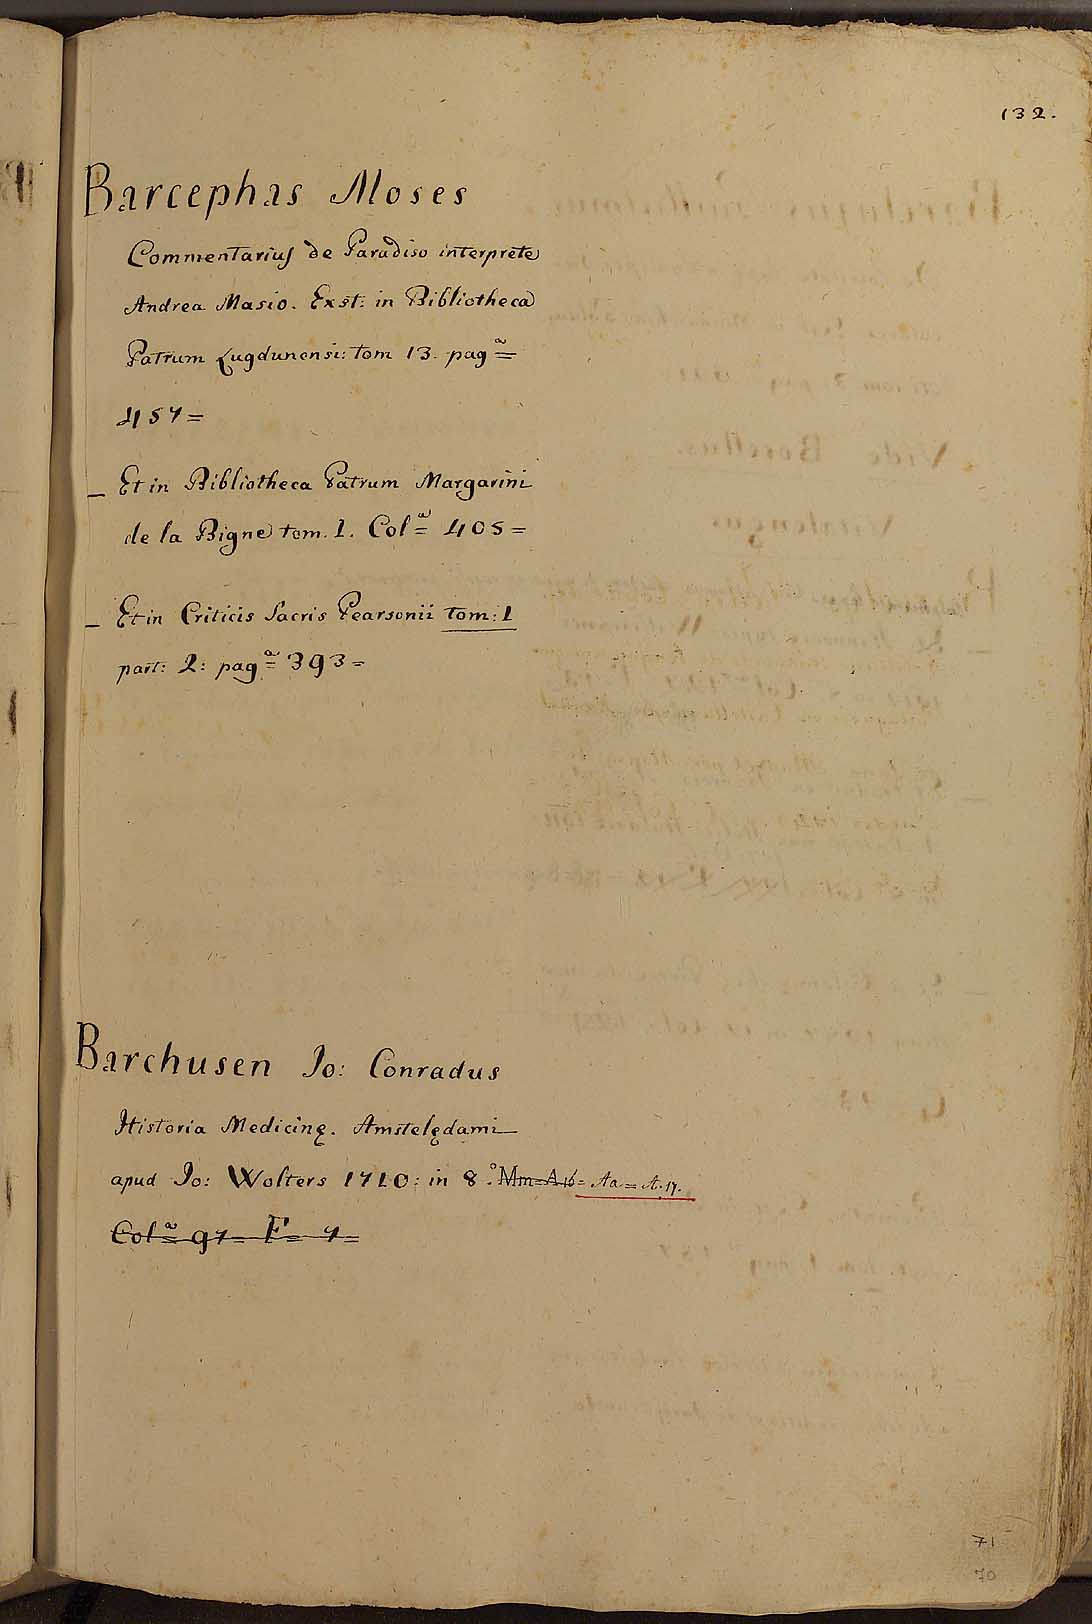 132.
Barcephas Moses
Commentarius de Paradiso interprete
Andrea Masio. Exst: in Bibliotheca
Patrum Lugdunensi: tom 13. pagª=
457=
_ Et in Bibliotheca Patrum Margarini
de la Bigne tom. 1. Colª= 405=
_ Et in Criticis Sacris Pearsonii tom: 1
part: 2: pagª= 393=
Barchusen Jo: Conradus
Historia Medicinę. Amstelędami
apud Jo: Wolters 1710: in 8.º Mm=A 16= Aa=A.17.
Colª= 97= F= 7=
71
70